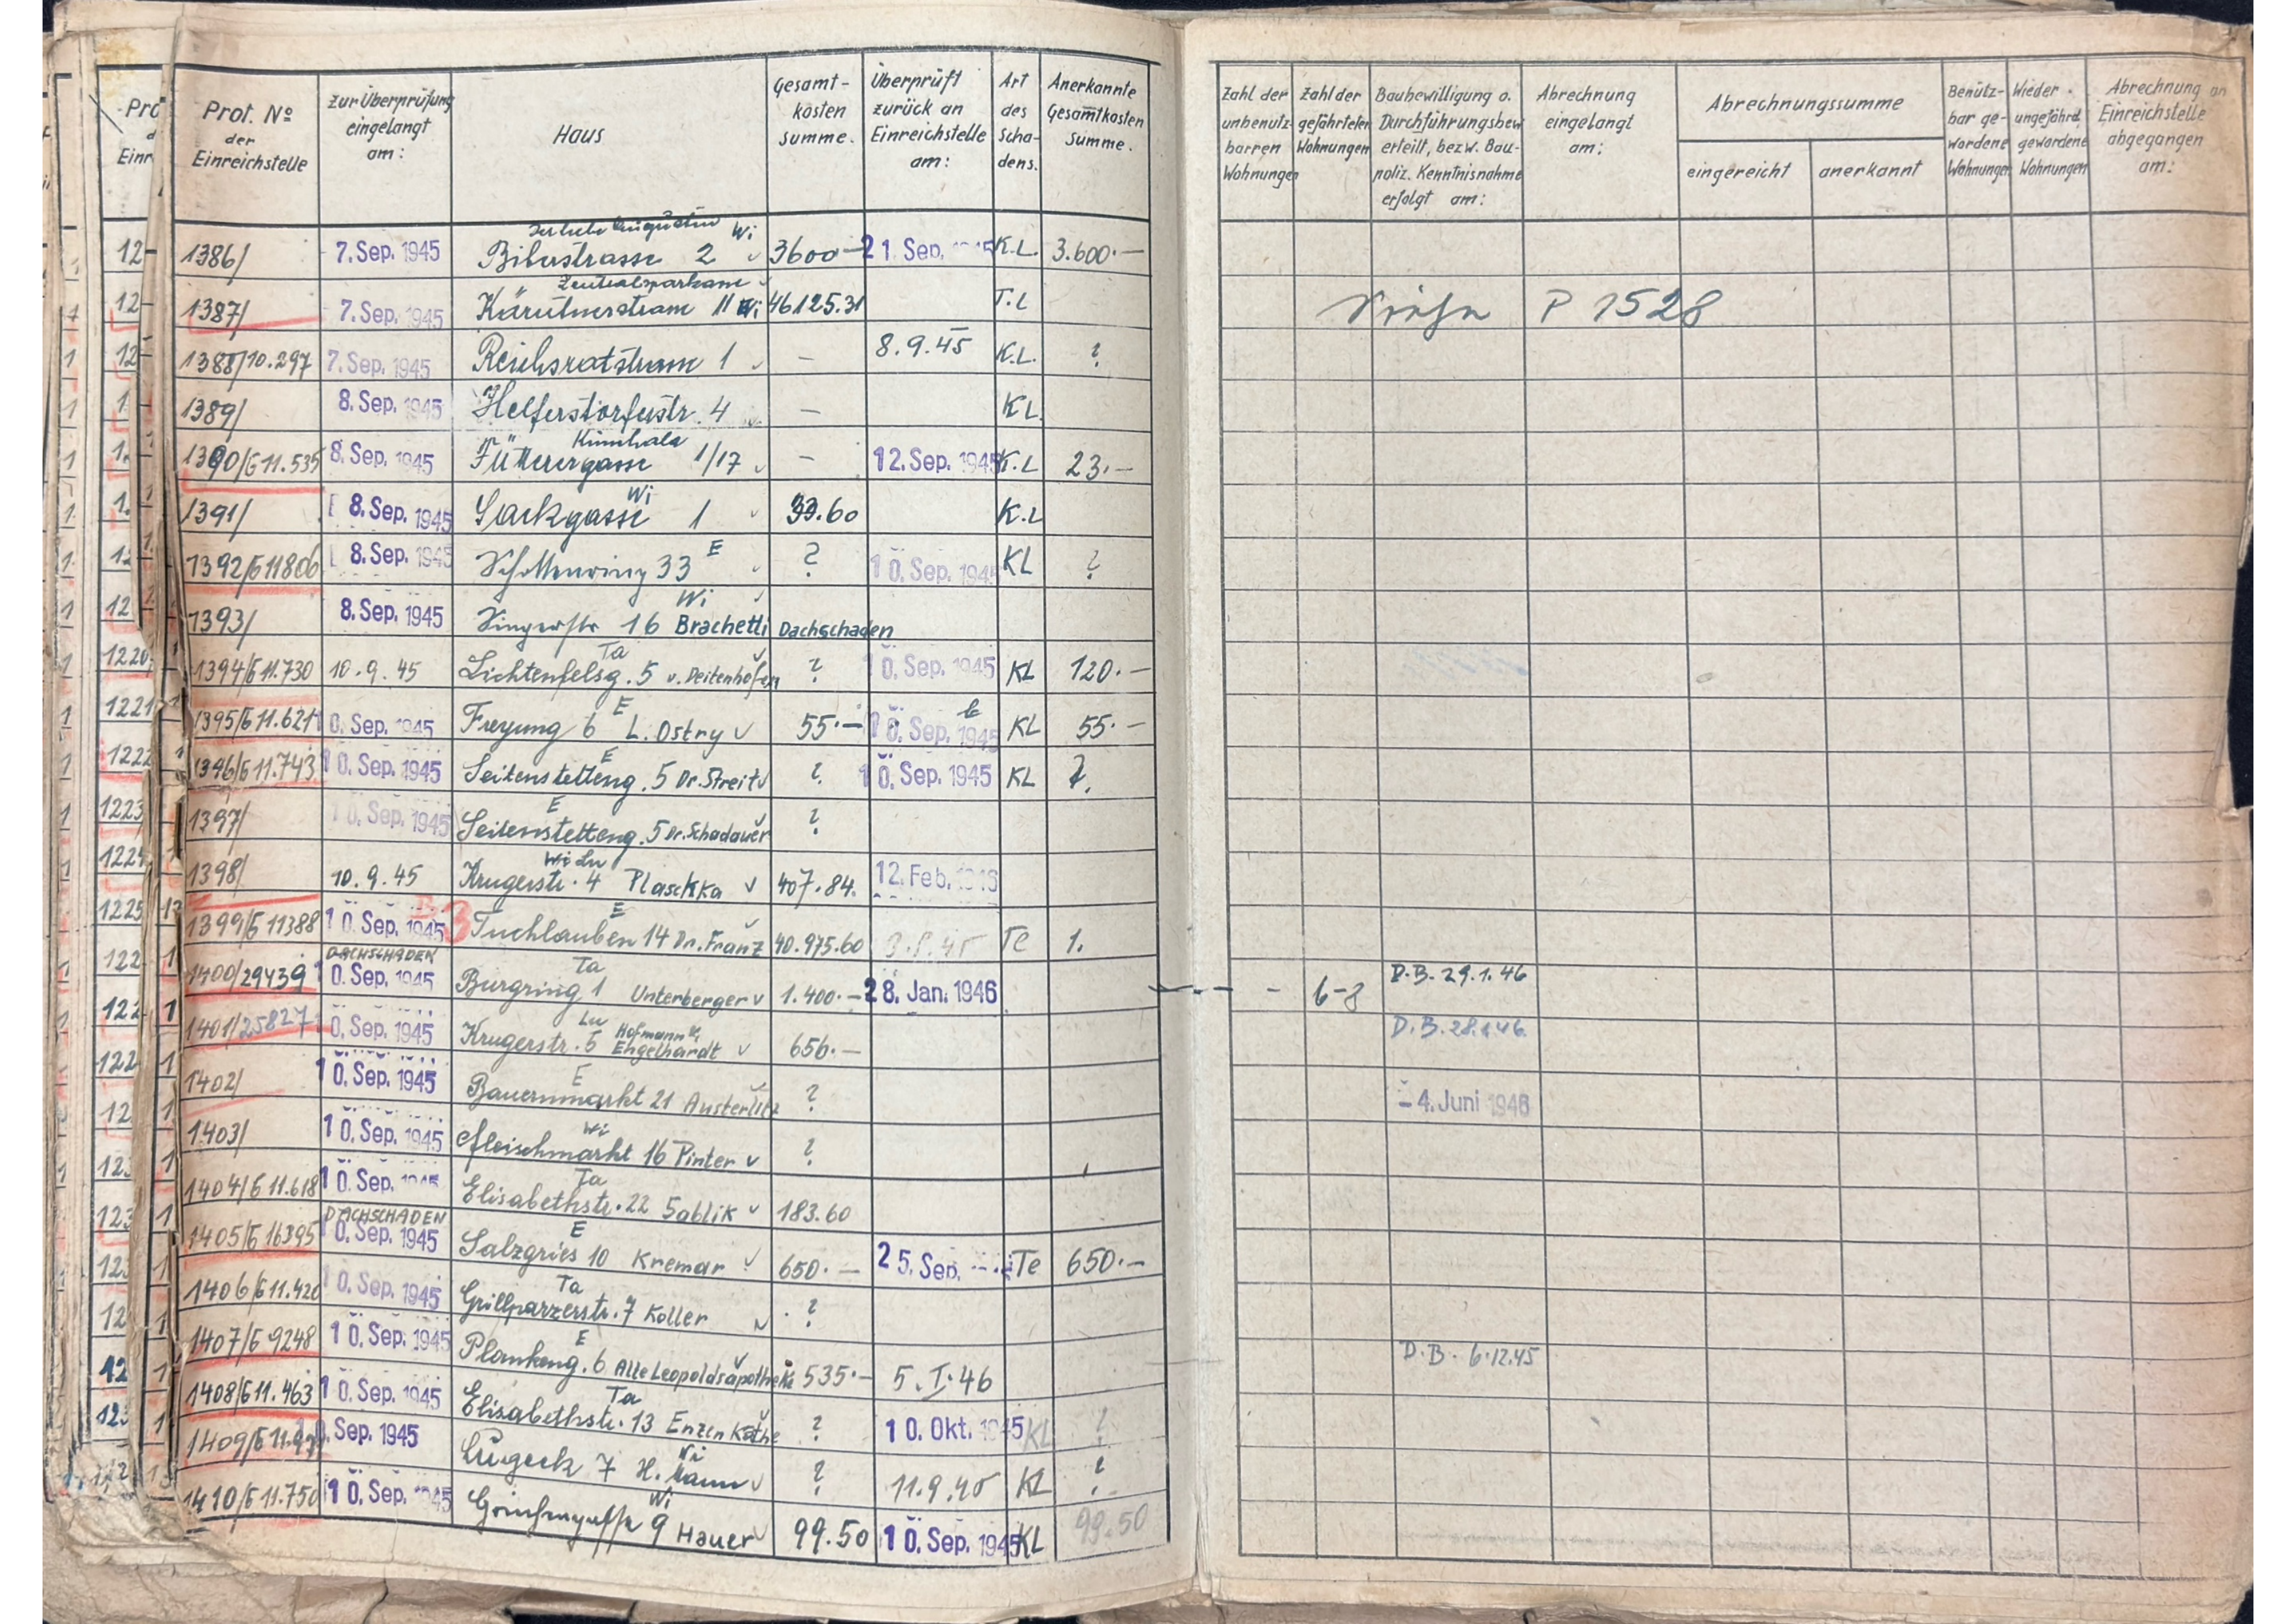 Prot. No der Einreichstelle | zur Überprüfung eingelangt am: | Haus | Gesamt-kosten summe. | Überprüft zurück an Einreichstelle am: | Art des Schadens. | Anerkannte Gesamtkosten Summe. | Zahl der unbenutzbaren Wohnungen | Zahl der gefährteten Wohnungen | Baubewilligung o. Durchführungsbew. erteilt, bezw. Bau-poliz. Kenntnisnahme erfolgt am: | Abrechnung eingelangt am: | Abrechnungssumme | eingereicht | anerkannt | Benütz-bar ge-wordene Wohnungen | Wieder ungefährd. gewordene Wohnungen | Abrechnung an Einreichstelle abgegangen am:
1386/ 7. Sep. 1945 Biberstrasse 2 Wi 3600 21. Sep. 1945 K.L. 3.600.—
1387/ 7. Sep. 1945 Zentralsparkasse Kärntnerstrasse 11 Wi 46125.31 T.L Siehe P 1528
1388/10.297 7. Sep. 1945 Reichsratstrasse 1 — 8.9.45 K.L. ?
1389/ 8. Sep. 1945 Helferstorferstr. 4 — K.L.
1390/G11.535 8. Sep. 1945 Füttererg​asse 1/17 — 12. Sep. 1945 K.L 23.—
1391/ 8. Sep. 1945 Sackgasse 1 Wi 33.60 K.L
1392/G11806 8. Sep. 1945 Schottenring 33 E ? 10. Sep. 1945 KL ?
1393/ 8. Sep. 1945 Singerstr 16 Brachetti Wi Dachschaden
1394/G11.730 10.9.45 Lichtenfelsg. 5 Ta v. Deitenhofen ? 10. Sep. 1945 KL 120.—
1395/G11.621 10. Sep. 1945 Freyung 6 E L. Ostry 55.— 10. Sep. 1945 KL 55.—
1396/G11.743 10. Sep. 1945 Seitenstetteng. 5 E Dr. Streit ? 10. Sep. 1945 KL ?
1397/ 10. Sep. 1945 Seitenstetteng. 5 E Dr. Schadauer ?
1398/ 10.9.45 Krugerstr. 4 Wi Lu Plaschka 407.84 12. Feb. 1946
1399/G11388 10. Sep. 1945 3 Tuchlauben 14 E Dr. Franz 40.975.60 Te 1.
1400/29439 DACHSCHADEN 10. Sep. 1945 Burgring 1 Ta Unterberger 1.400.— 28. Jan. 1946 6-8 D.B. 29.1.46
1401/25827 10. Sep. 1945 Krugerstr. 5 Lu Hofmann u. Engelhardt 656.— D.B. 28.1.46
1402/ 10. Sep. 1945 Bauernmarkt 21 E Austerlitz ? - 4. Juni 1946
1403/ 10. Sep. 1945 Fleischmarkt 16 Wi Pinter ?
1404/G11.618 10. Sep. 1945 Elisabethstr. 22 Ta Sablik 183.60
1405/G16395 DACHSCHADEN 10. Sep. 1945 Salzgries 10 E Kremar 650.— 25. Sep. Te 650.—
1406/G11.420 10. Sep. 1945 Grillparzerstr. 7 Ta Koller ?
1407/G9248 10. Sep. 1945 Plankeng. 6 E Alte Leopoldsapotheke 535.— 5.I.46 D.B. 6.12.45
1408/G11.463 10. Sep. 1945 Elisabethstr. 13 Ta Enzen Käthe ? 10. Okt. 1945 KL ?
1409/ Sep. 1945 Lugeck 7 Wi H. Mann ? 11.9.45 KL ?
1410/G11.750 10. Sep. 1945 9 Wi Hauer 99.50 10. Sep. 1945 KL 99.50